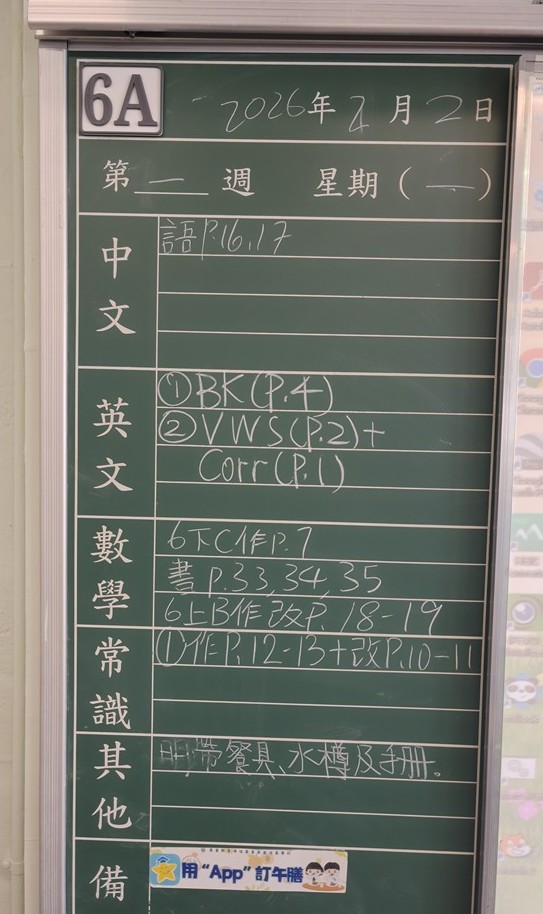 6A
2026年2月2日
第一週 星期(一)
中文
語P.16,17
英文
①BK(P.4)
②VWS(P.2)+
Corr(P.1)
數學
6下C作P.7
書P.33,34,35
6上B作改P.18-19
常識
①作P.12-13+改P.10-11
其他
明帶餐具、水樽及手冊。
備
用“App”訂午膳